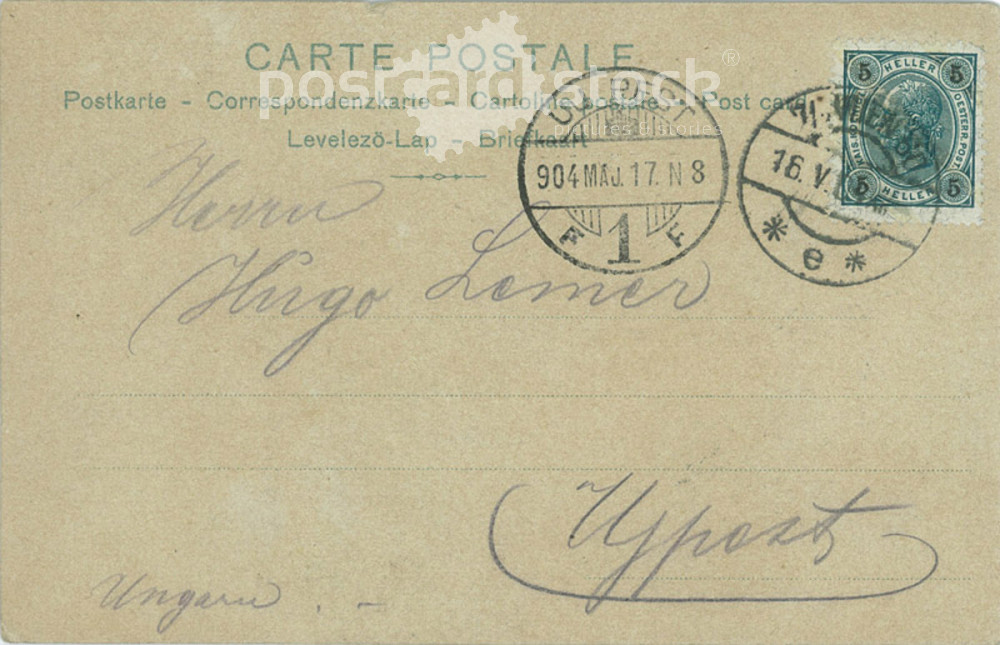 CARTE POSTALE
postcard stock®
pictures & stories
Postkarte - Correspondenzkarte - Cartolina postale - Post card
Levelező-Lap - Briefkaart
5 HELLER 5
OESTERR. POST.
5 HELLER 5
UJPEST
904 MÁJ. 17. N 8
F 1 F
WIEN
16. V.
* e *
Herrn
Hugo Lemer
Ujpest
Ungarn . –